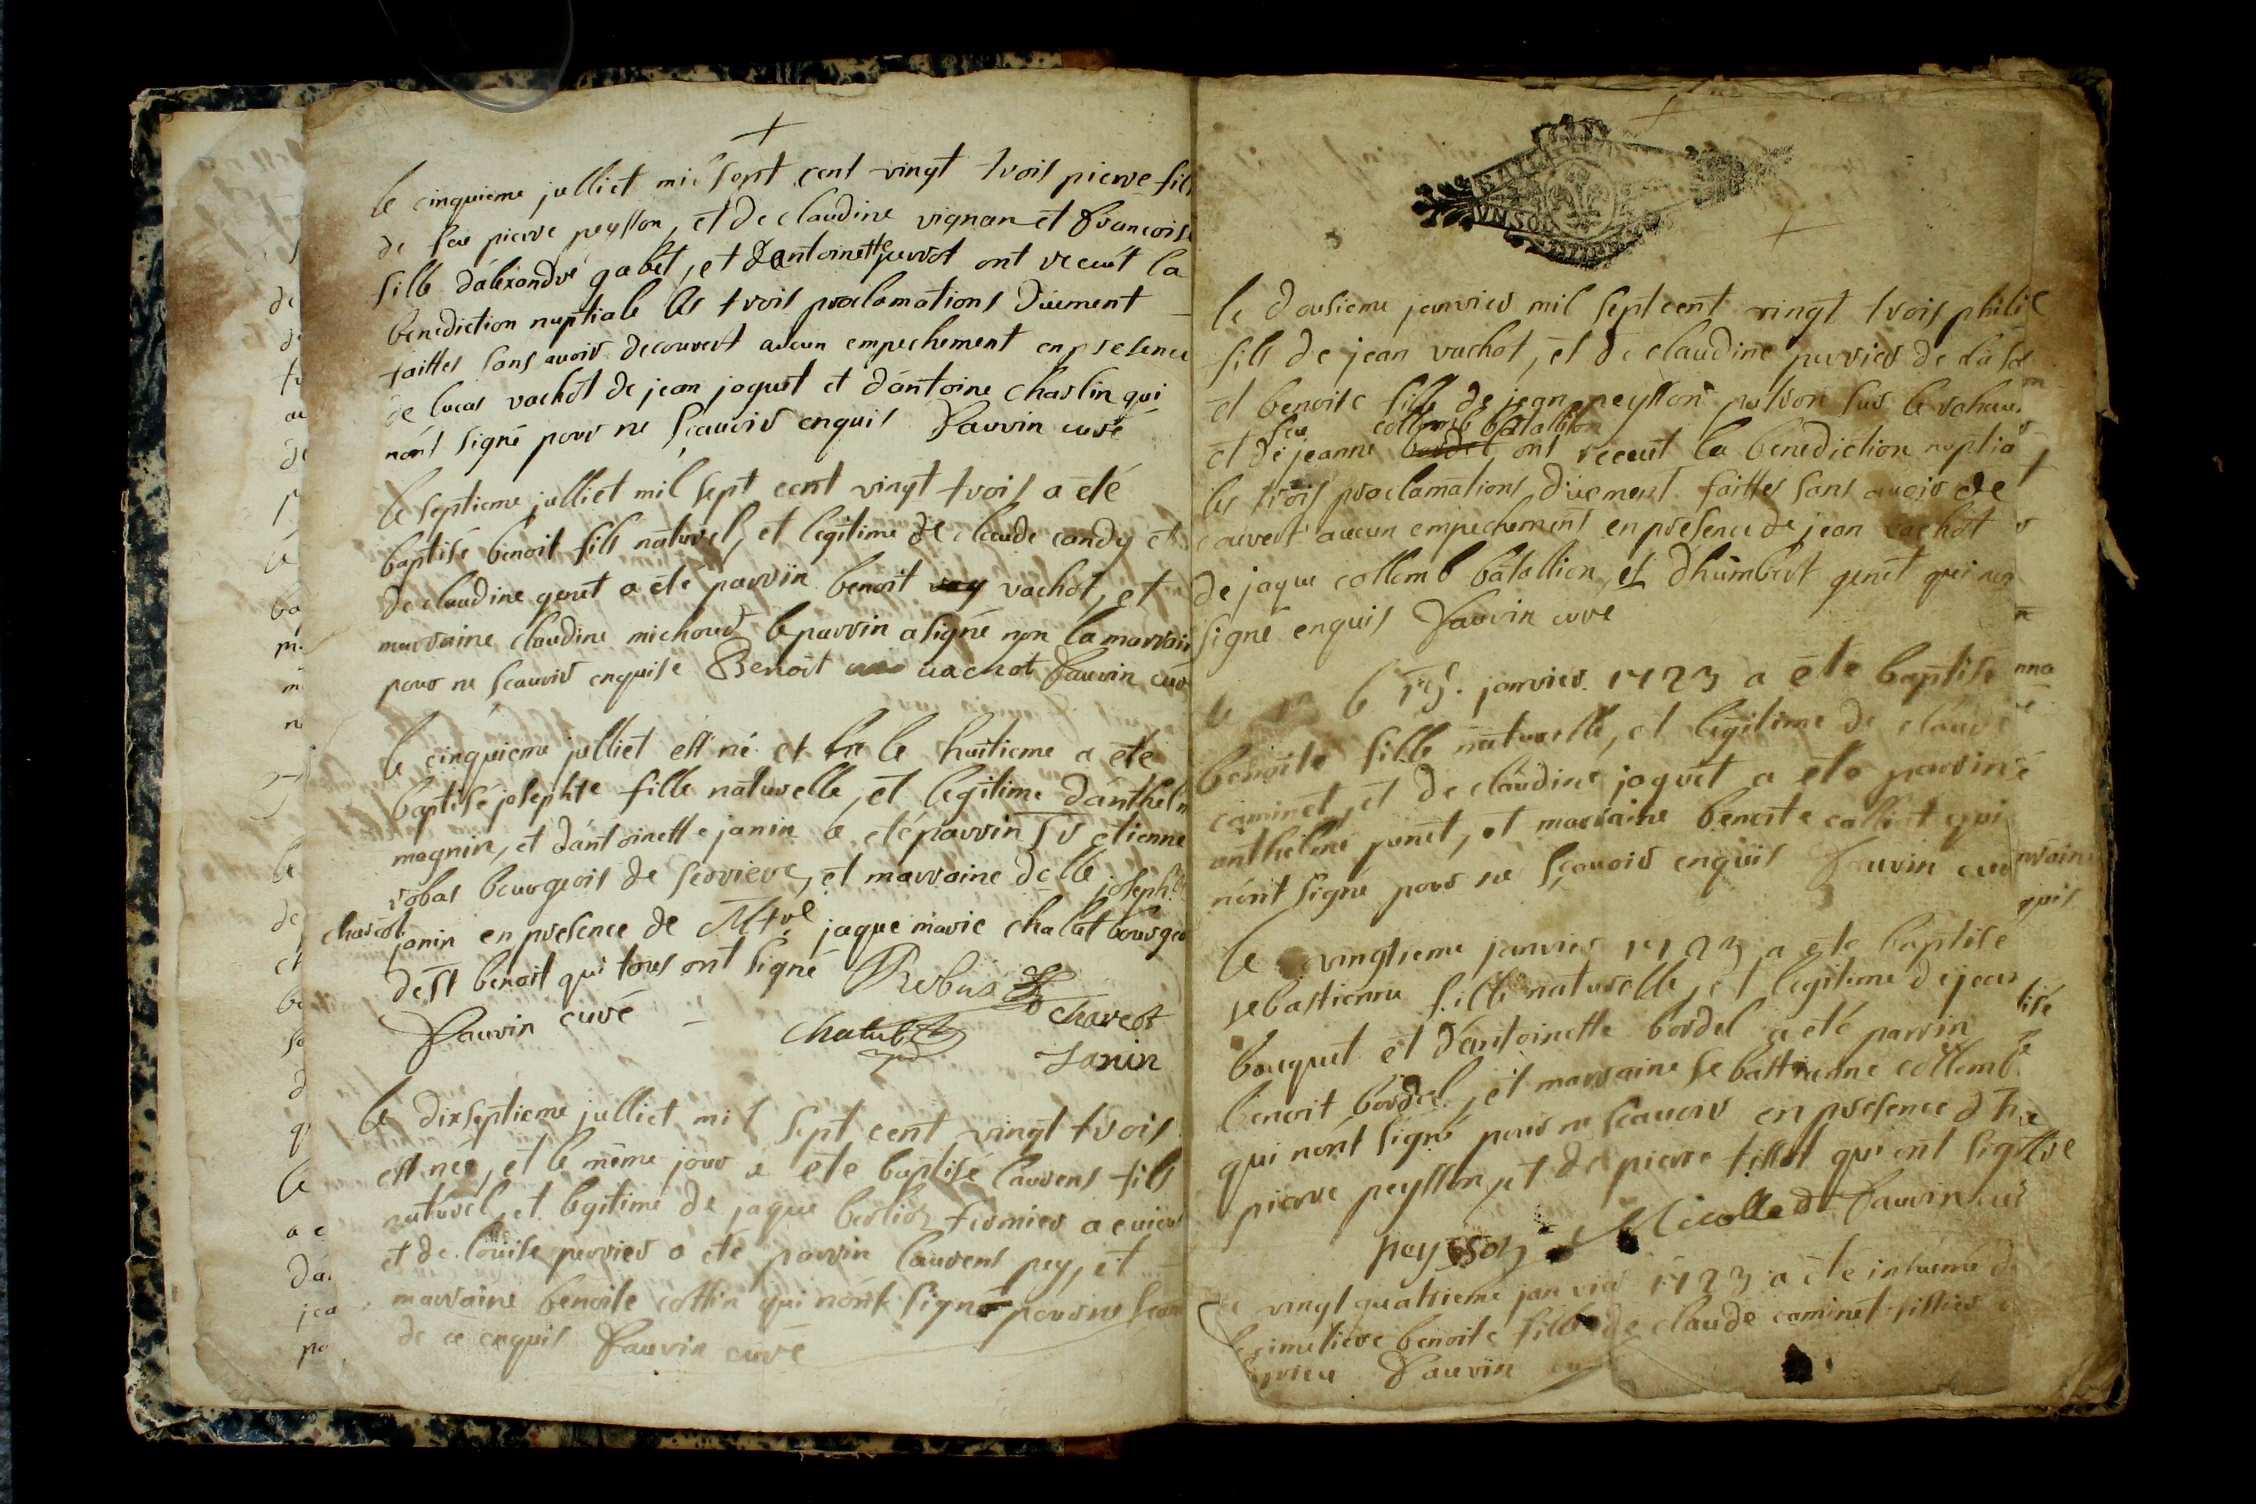 le cinquieme julliet mil sept cent vingt trois pierre fils
de feu pierre peysson, et de claudine vignan et francoise
fille d'alexandre gabet, et d'antoinette perrot ont receut la
benediction nuptiale les trois proclamations düement
faittes sans avoir decouvert aucun empechement en presence
de lucas vachot de jean joquet et d'antoine charlin qui
n'ont signé pour ne scavoir enquis Fauvin curé
le septieme julliet mil sept cent vingt trois a eté
baptisé benoit fils naturel, et legitime de claude candy et
de claudine genet a eté parrin benoit vachot, et
marraine claudine michoud le parrin a signé non la marrain
pour ne scavoir enquise Benoit vachot Fauvin curé
le cinquieme julliet est né et le huitieme a eté
baptisé josephte fille naturelle, et legitime d'anthelm
magnin, et d'antoinette janin a eté parrin sr etienne
robas bourgeois de servieve, et marraine delle joseph
charcot
janin en presence de jaque marie chalet bourgeo
de st benoit qui tous ont signé Robas
Fauvin curé charcot
Janin
le dixseptieme julliet mil sept cent vingt trois
est née, et le même jour a eté baptisé laurens fils
naturel, et legitime de jaque berlioz fermier a
et de loüise perrier a eté parrin laurens pey, et
marraine benoite cottin qui n'ont signé pour ne scav
de ce enquis Fauvin curé
UN SOL
le dousieme janvier mil sept cent vingt trois
fils de jean vachot, et de claudine perrier de
et benoite fille de jean peysson sur le
feu collomb batallion
et de jeanne bordel ont receut la benediction nuptia
les trois proclamations düement faittes sans avoir de
couvert aucun empechement en presence de jean vachot
de jaque collomb batallion, et d'humbert genet qui
signé enquis Fauvin curé
janvier 1723 a eté baptisé
benoite fille naturelle, et legitime de claude
caminet, et de claudine joquet a eté parrin
anthelme ponet, et marraine benoite calliet qui
n'ont signé pour ne scavoir enquis Fauvin cur
le vingtieme janvier 1723 a eté baptisé
sebastienne fille naturelle, et legitime de jean
bouquet et d'antoinette bordel a eté parrin
benoit bordel, et marraine sebastienne collomb
qui n'ont signé pour ne scavoir en presence
pierre peysson, et de pierre qui ont signé
peysson Fauvin cu
le vingt quatrieme janvier 1723 a eté inhumé d
le cimetiere benoite fille de claude caminet
Fauvin cu